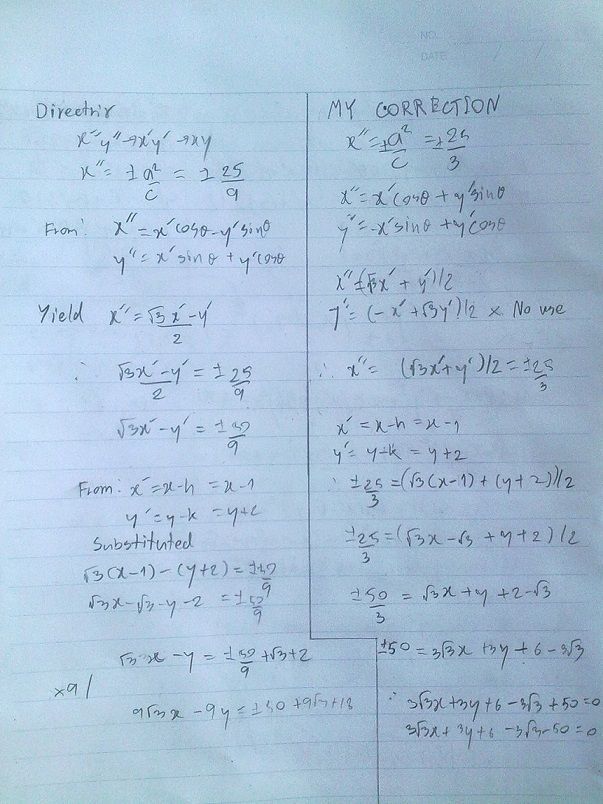 NO.
DATE
Directrix
x″y″→x′y′→xy
x″ = ± a²/c = ± 25/9
From: x″ = x′cosθ - y′sinθ
y″ = x′sinθ + y′cosθ
Yield x″ = (√3x′ - y′)/2
∴ (√3x′ - y′)/2 = ± 25/9
√3x′ - y′ = ± 50/9
From: x′ = x-h = x-1
y′ = y-k = y+2
Substituted
√3(x-1) - (y+2) = ± 50/9
√3x - √3 - y - 2 = ± 50/9
√3x - y = ± 50/9 + √3 + 2
×9/
9√3x - 9y = ± 50 + 9√3 + 18
MY CORRECTION
x″ = ± a²/c = ± 25/3
x″ = x′cosθ + y′sinθ
y″ = -x′sinθ + y′cosθ
x″ = (√3x′ + y′)/2
y″ = (-x′ + √3y′)/2 × No use
∴ x″ = (√3x′ + y′)/2 = ± 25/3
x′ = x-h = x-1
y′ = y-k = y+2
∴ ± 25/3 = (√3(x-1) + (y+2))/2
± 25/3 = (√3x - √3 + y + 2)/2
± 50/3 = √3x + y + 2 - √3
±50 = 3√3x + 3y + 6 - 3√3
∴ 3√3x + 3y + 6 - 3√3 + 50 = 0
3√3x + 3y + 6 - 3√3 - 50 = 0